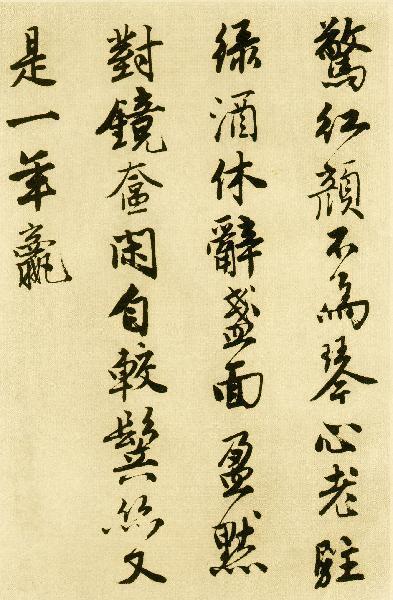 驚紅顏不為琴心老駐
綠酒休辭盞面盈默
對鏡奩閑自較鬢絲又
是一年贏